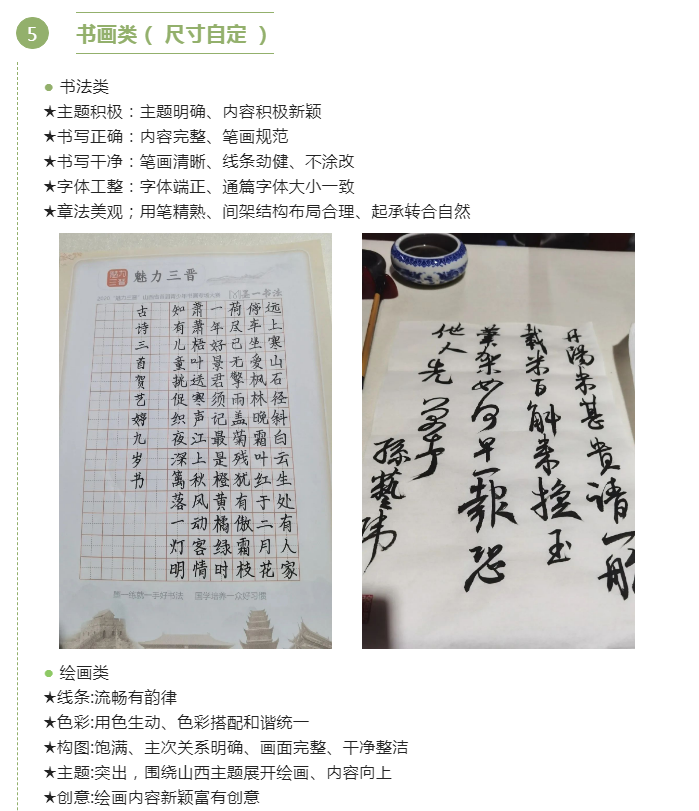 5
书画类（ 尺寸自定 ）
书法类
★主题积极：主题明确、内容积极新颖
★书写正确：内容完整、笔画规范
★书写干净：笔画清晰、线条劲健、不涂改
★字体工整：字体端正、通篇字体大小一致
★章法美观；用笔精熟、间架结构布局合理、起承转合自然
魅力三晋
墨一书法
远上寒山石径斜白云生处有人家
停车坐爱枫林晚霜叶红于二月花
荷尽已无擎雨盖菊残犹有傲霜枝
一年好景君须记最是橙黄橘绿时
萧萧梧叶送寒声江上秋风动客情
知有儿童挑促织夜深篱落一灯明
古诗三首贺艺婷九岁书
就一手好书法 国学培养一众好习惯
丹陽米甚貴請一航
載米百斛来換玉
架如何早一報恐
他人先
孫藝瑋
绘画类
★线条:流畅有韵律
★色彩:用色生动、色彩搭配和谐统一
★构图:饱满、主次关系明确、画面完整、干净整洁
★主题:突出，围绕山西主题展开绘画、内容向上
★创意:绘画内容新颖富有创意